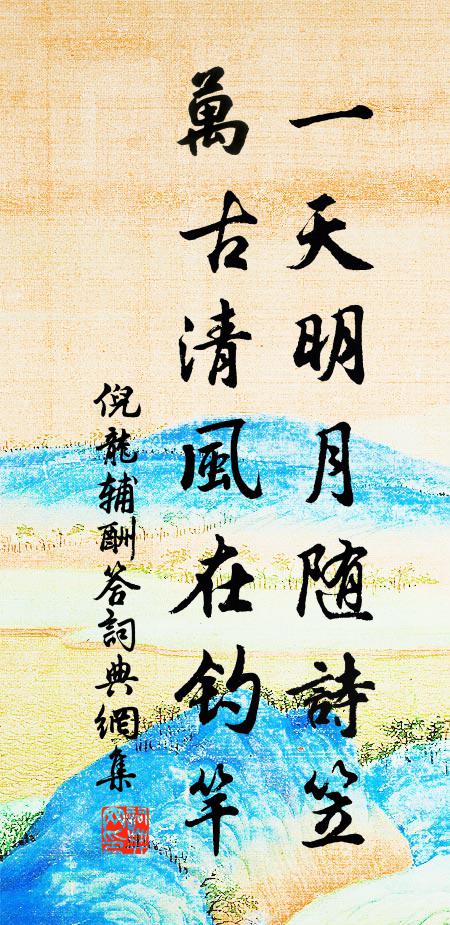 一天明月随詩笠
萬古清風在釣竿
倪龍辅酬答詞典網集